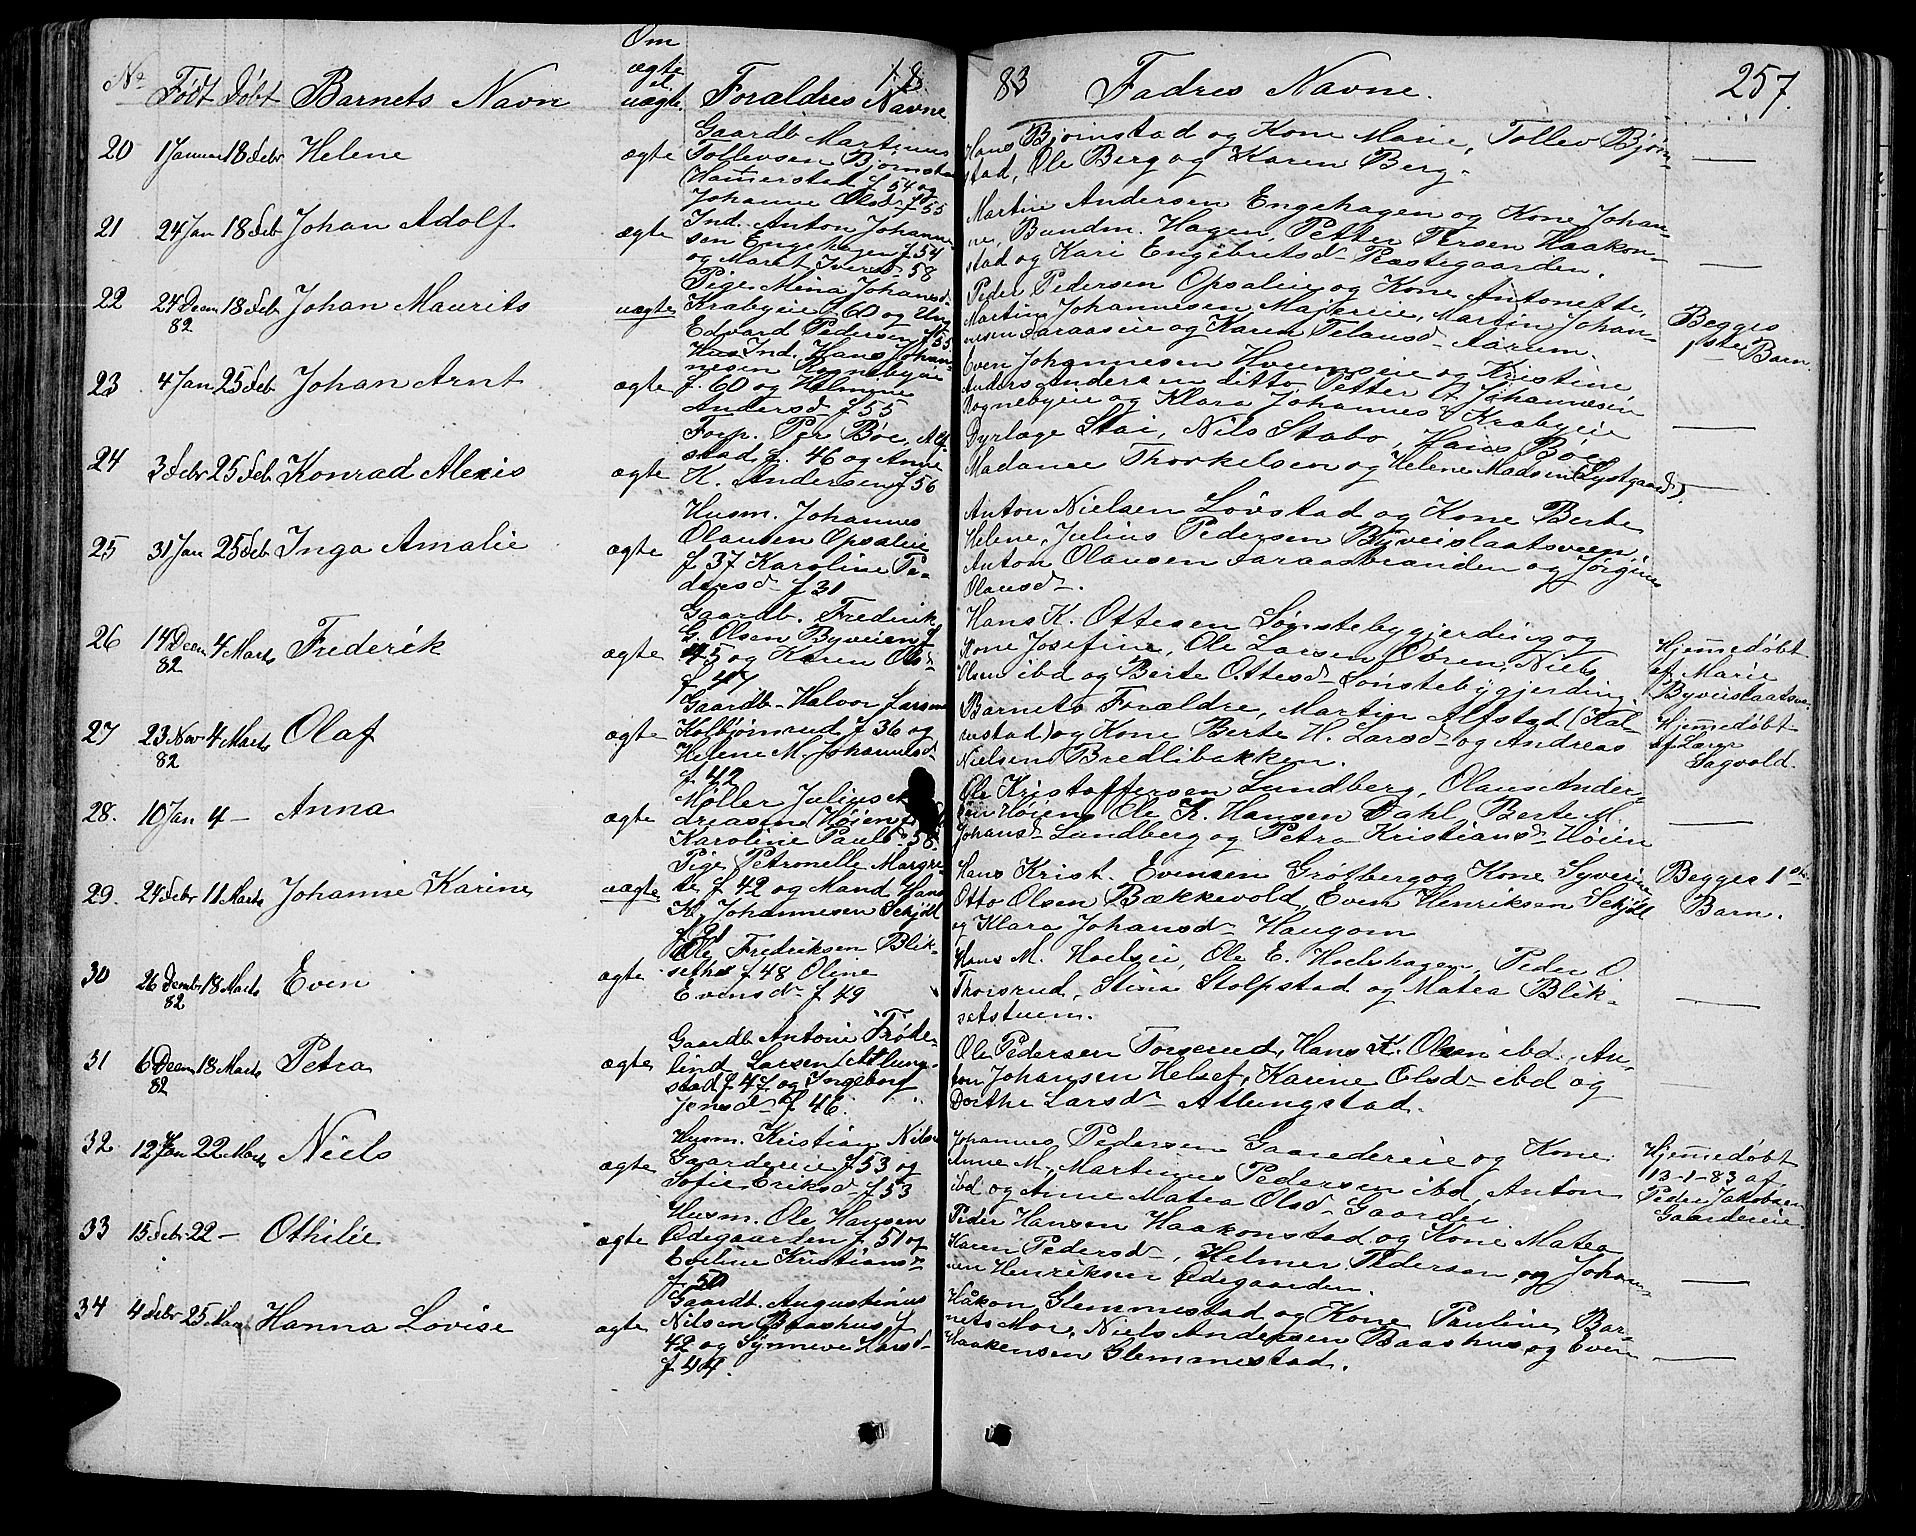 No. Født Døbt Barnets Navn Om ægte el. uægte. Forældres Navne 1883 Fadres Navne. 257.
20 1 Januar 18 Febr Helene ægte
Gaardb. Martinus
Tollevsen Bjørnstad
(Hammerstad f 54 og
Johanne Olsd f 55
Hans Bjørnstad og Kone Marie, Tollev Bjørn-
stad, Ole Berg og Karen Berg.
21 24 Jan 18 Feb Johan Adolf ægte
Ind. Anton Johanne-
sen Engehagen f 54
og Marit Iversd 58
Martin Andersen Engehagen og Kone Johan-
ne, Bundm. Hagen, Petter Persen Haakon-
stad og Kari Engebretsd Prestegaarden.
22 24 Decm 82 18 Febr Johan Maurits uægte
Pige Mina Johansd
Krabyeie f 60 og Ung
Edvard Pedersen f 55
Peder Pedersen Opsaleie og Kone Antonette,
Martin Johannesen Majereie, Martin Johan-
nesen Faraaseie og Karen Aarum.
Begges 1ste Barn.
23 4 Jan 25 Feb Johan Arnt ægte
Ind. Hans Johan-
nesen Rognebyeie
f. 60 og Helmine
Andersd f 55
Even Johannesen Hveemseie og Kristine
Anders Andersen ditto, Petter A Johannesen
Rognebyeie og Klara Johannesd Krabyeie
24 3 Febr 25 Feb Konrad Alexis ægte
Forp. Per Bøe, Alf
stad f. 46 og Anne
K. Andersen f 56
Dyrlæge Stai, Nils Stabo, Hans Bøe
Madame Thorkelsen og Helene Madsen (Lystgaard).
25 31 Jan 25 Feb Inga Amalie ægte
Husm. Johannes
Olausen Opsaleie
f 37 Karoline Pe-
dersd f 31
Anton Nielsen Løvstad og Kone Berte
Helene, Julius Pedersen Byveislaatsveen,
Anton Olausen Faraasbraaden og Jørgine
Olausd.
26 14 Decm 82 4 Marts Frederik ægte
Gaardb. Frederik
G. Olsen Byveien f
45 og Karen Olsd
f 47
Hans K. Ottesen Sønstebygjerding og
Kone Josefine, Ole Larsen Obren, Niels
Olsen ibd og Berte Ottesd Sønstebygjerding.
Hjemmedøbt
af Marie
27 23 Nov 82 4 Marts Olaf ægte
Gaardb. Halvor Larsen
Kolbjørnsrud f 36 og
Helene M. Johannesd
f. 42
Barnets Forældre, Martin Alfstad (Kal-
rustad) og Kone Berte H. Larsd og Andreas
Nielsen Bredlibakken.
Hjemmedøbt
af Lærer
Sagvold.
28. 10 Jan 4 — Anna ægte
Møller Julius
dreasen (Høien
Karoline Paulsd 58.
Ole Kristoffersen Lundberg, Olaus Ander-
sen Høien, Ole K. Hansen Dahl, Berte M.
Johansd Lundberg og Petra Kristiansd Høien
29. 24 Febr 11 Marts Johanne Karine uægte
Pige Petronelle Margre-
te f 42 og Mand Hans
K. Johannesen Skjøll
f 21
Hans Krist. Evensen Grøtberg og Kone Syverine
Otto Olsen Bækkevold, Even Henriksen Skjøll
og Klara Johansd Haugom
Begges 1ste
Barn.
30 26 Decmbr 82 18 Marts Even ægte
Ole Fredriksen Blik-
sethei f 48 Oline
Evensd f 49
Hans M. Hoelseie, Ole E. Hoelshagen, Peder O.
Thorsrud, Stina Stolpstad og Matea Blik-
setstuem.
31 6 Decm 82 18 Marts Petra ægte
Gaardb. Antoni Frøde-
lind Larsen (Atlung-
stad f 47 og Ingeborg
Jensd f 46.
Ole Pedersen Torserud, Hans K. Olsen ibd, An-
ton Johansen Helset, Karine Olsd ibd og
Dorthe Larsd Atlungstad.
32 12 Jan 22 Marts Niels ægte
Husm. Kristian Nils.
Gaardereie f 53 og
Sofie Eriksd f 53
Johannes Pedersen Gaardereie og Kone
Anne M. Martinus Pedersen ibd, Anton
ibd og Anne Matea Olsd Gaarder
Hjemmedøbt
13-1-83 af
Peder Jakobsen
Gaardereie.
33 15 Febr 22 — Othilie ægte
Husm. Ole Hansen
Ødegaarden f 51 og
Eveline Kristiansd
f. 50
Peder Hansen Haakonstad og Kone Matea
Karen Pedersd, Helmer Pedersen og Johan-
nes Henriksen Ødegaarden.
34 4 Febr 25 Marts Hanna Lovise ægte
Gaardb. Augustinus
Nilsen Baashus f
42 og Synneve Larsd
f 44.
Håkon Glemmestad og Kone Pauline, Bar-
nets Mor, Niels Andersen Baashus og Even
Haakensen Glemmestad.